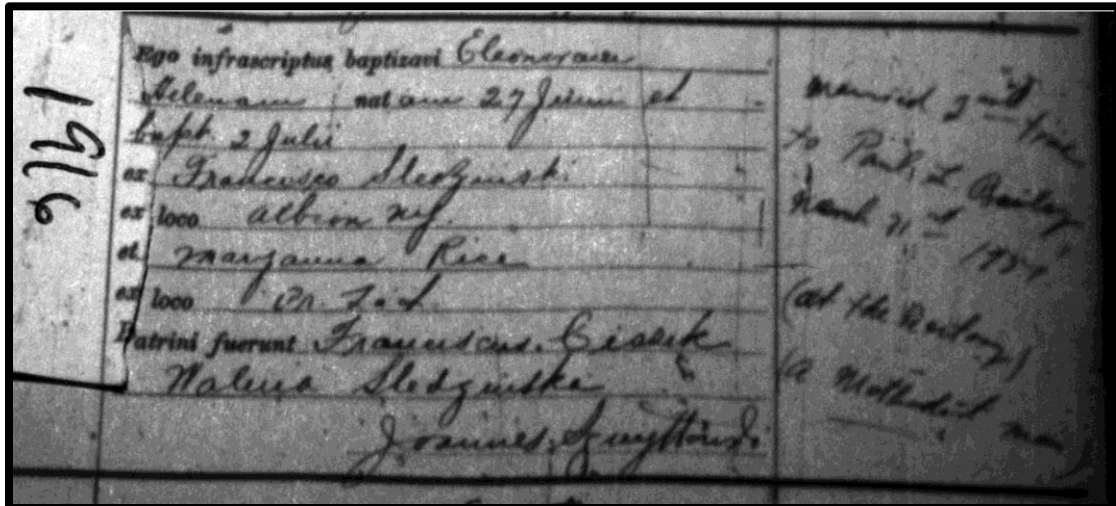 1916
Ego infrascriptus baptizavi Eleonoram
Helenam nat am 27 Junii et
bapt. 2 Julii
ex Francisco Sledzinski
ex loco Albion
et Maryanna Rice
ex loco
Patrini fuerunt Franciscus Cisek
Waleria Sledzinska
Joannes
married 2nd time
to Paul L
March 21st
(at the Rectory)
(a Methodist man)